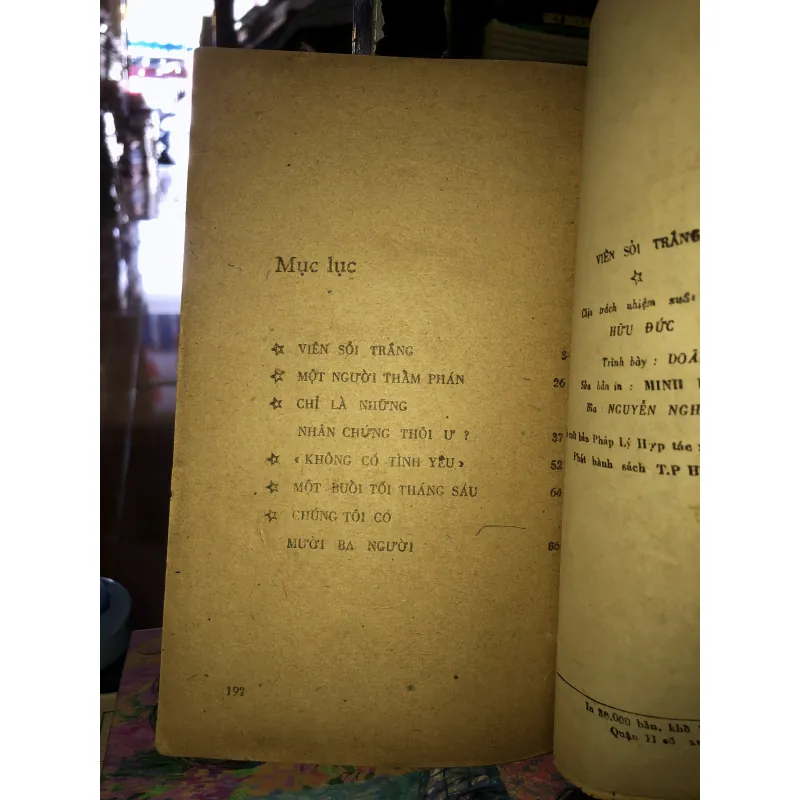 Mục lục
VIÊN SỎI TRẮNG
MỘT NGƯỜI THẨM PHÁN 26
CHỈ LÀ NHỮNG
NHÂN CHỨNG THÔI Ư ? 37
« KHÔNG CÓ TÌNH YÊU » 52
MỘT BUỔI TỐI THÁNG SÁU 64
CHÚNG TÔI CÓ
MƯỜI BA NGƯỜI 86
192
VIÊN SỎI TRẮNG
Chịu trách nhiệm xuất
HỮU ĐỨC
Trình bày : DOÃ
Sửa bản in : MINH
Bìa NGUYỄN NGH
xuất bản Pháp Lý Hợp tác
Phát hành sách T.P H
In 38.000 bản, khổ
Quận 11 số